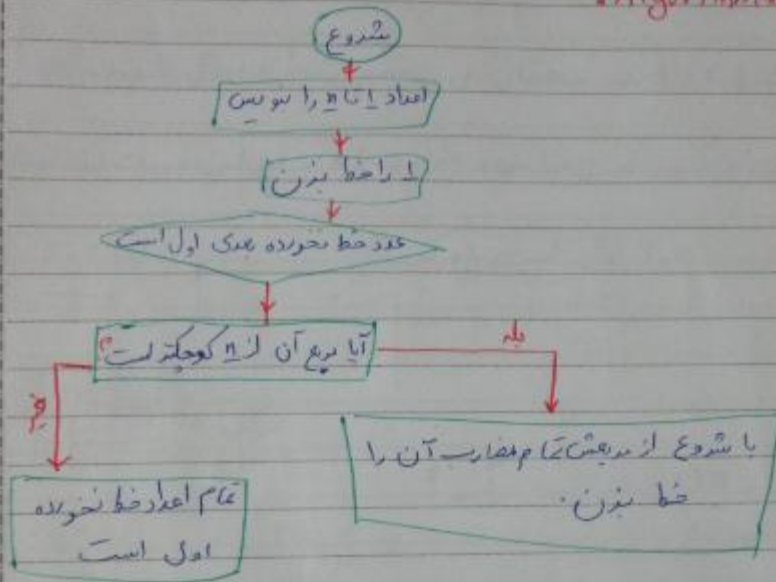 شروع
اعداد 1 تا n را بنویس
1 را خط بزن
عدد خط نخورده بعدی اول است
آیا مربع آن از n کوچکتر است؟
بله
خیر
با شروع از مربعش تمام مضارب آن را
خط بزن.
تمام اعداد خط نخورده
اول است